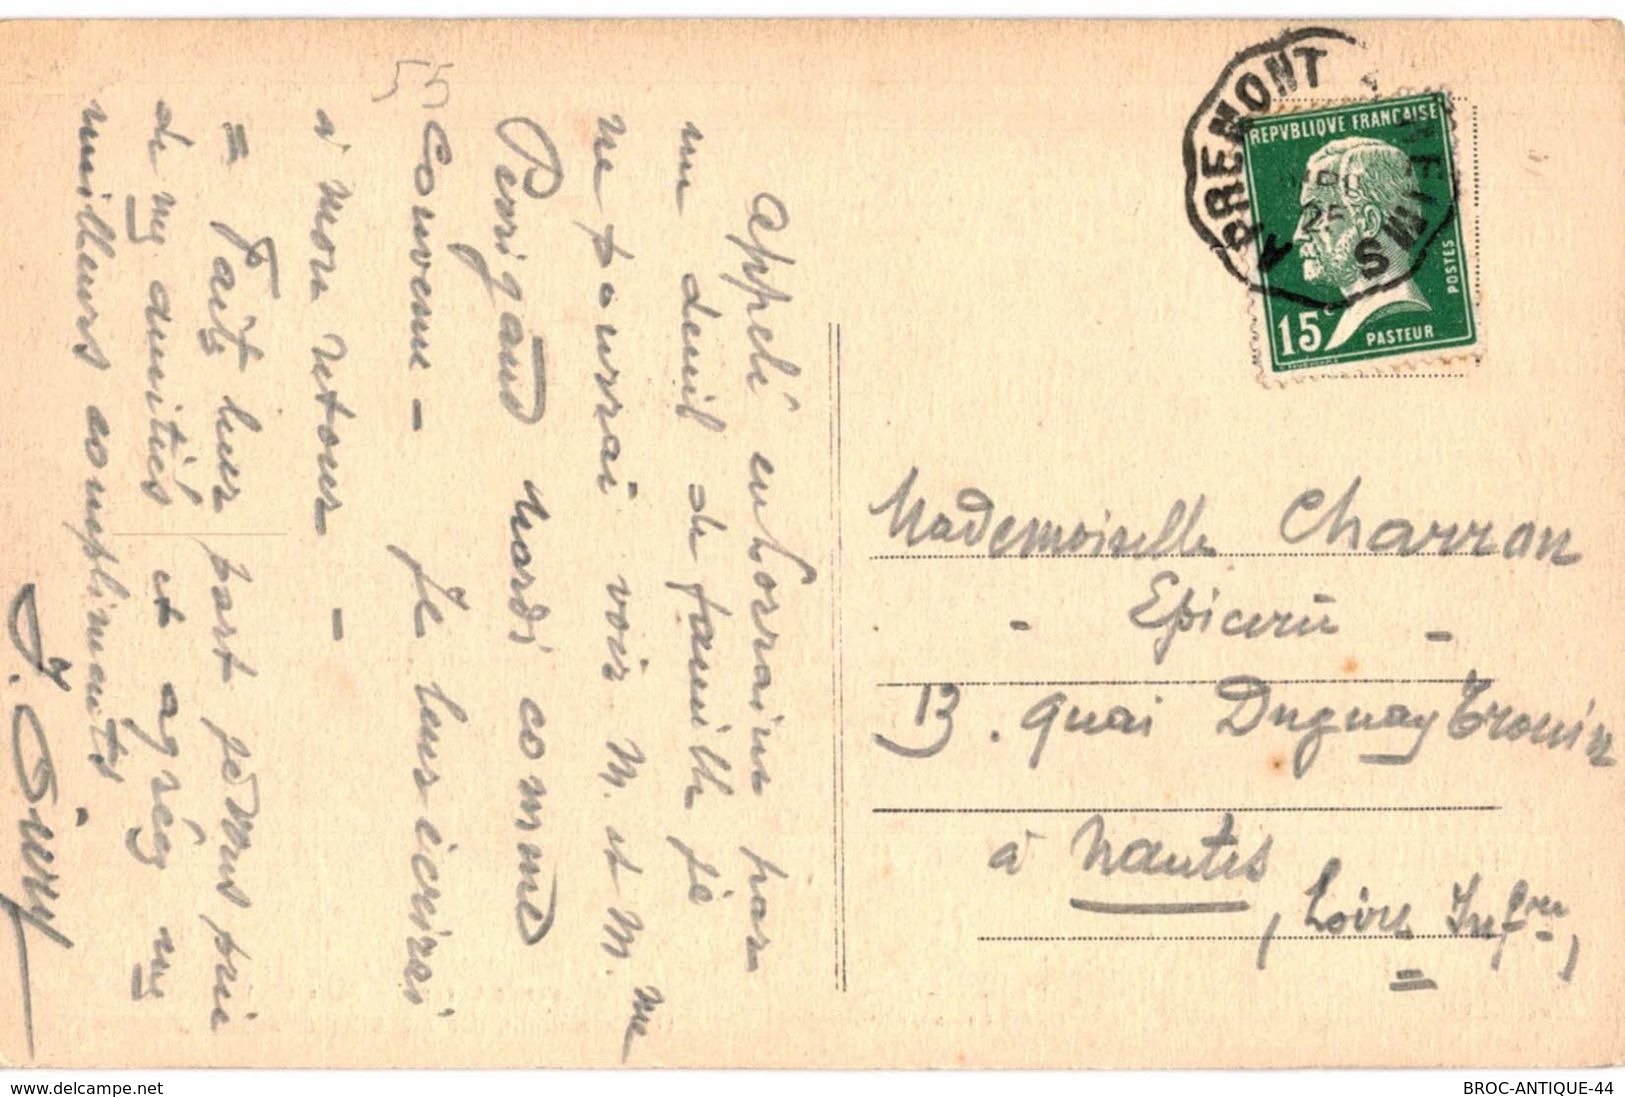 55
appelé en Lorraine par
un deuil de famille je
ne pourrai voir M. et Mme
Perrigaud Mardi comme
convenu - Je leur écrirai
à mon retour -
= Faits leur part je vous prie
de mes amitiés et agréez mes
meilleurs compliments
J.
APREMONT A REIMS
25
REPVBLIQVE FRANCAISE
POSTES
15 PASTEUR
Mademoiselle Charron
- Epicerie -
13. quai Duguay Trouin
à Nantes
(Loire Infre)
www.delcampe.net
BROC-ANTIQUE-44